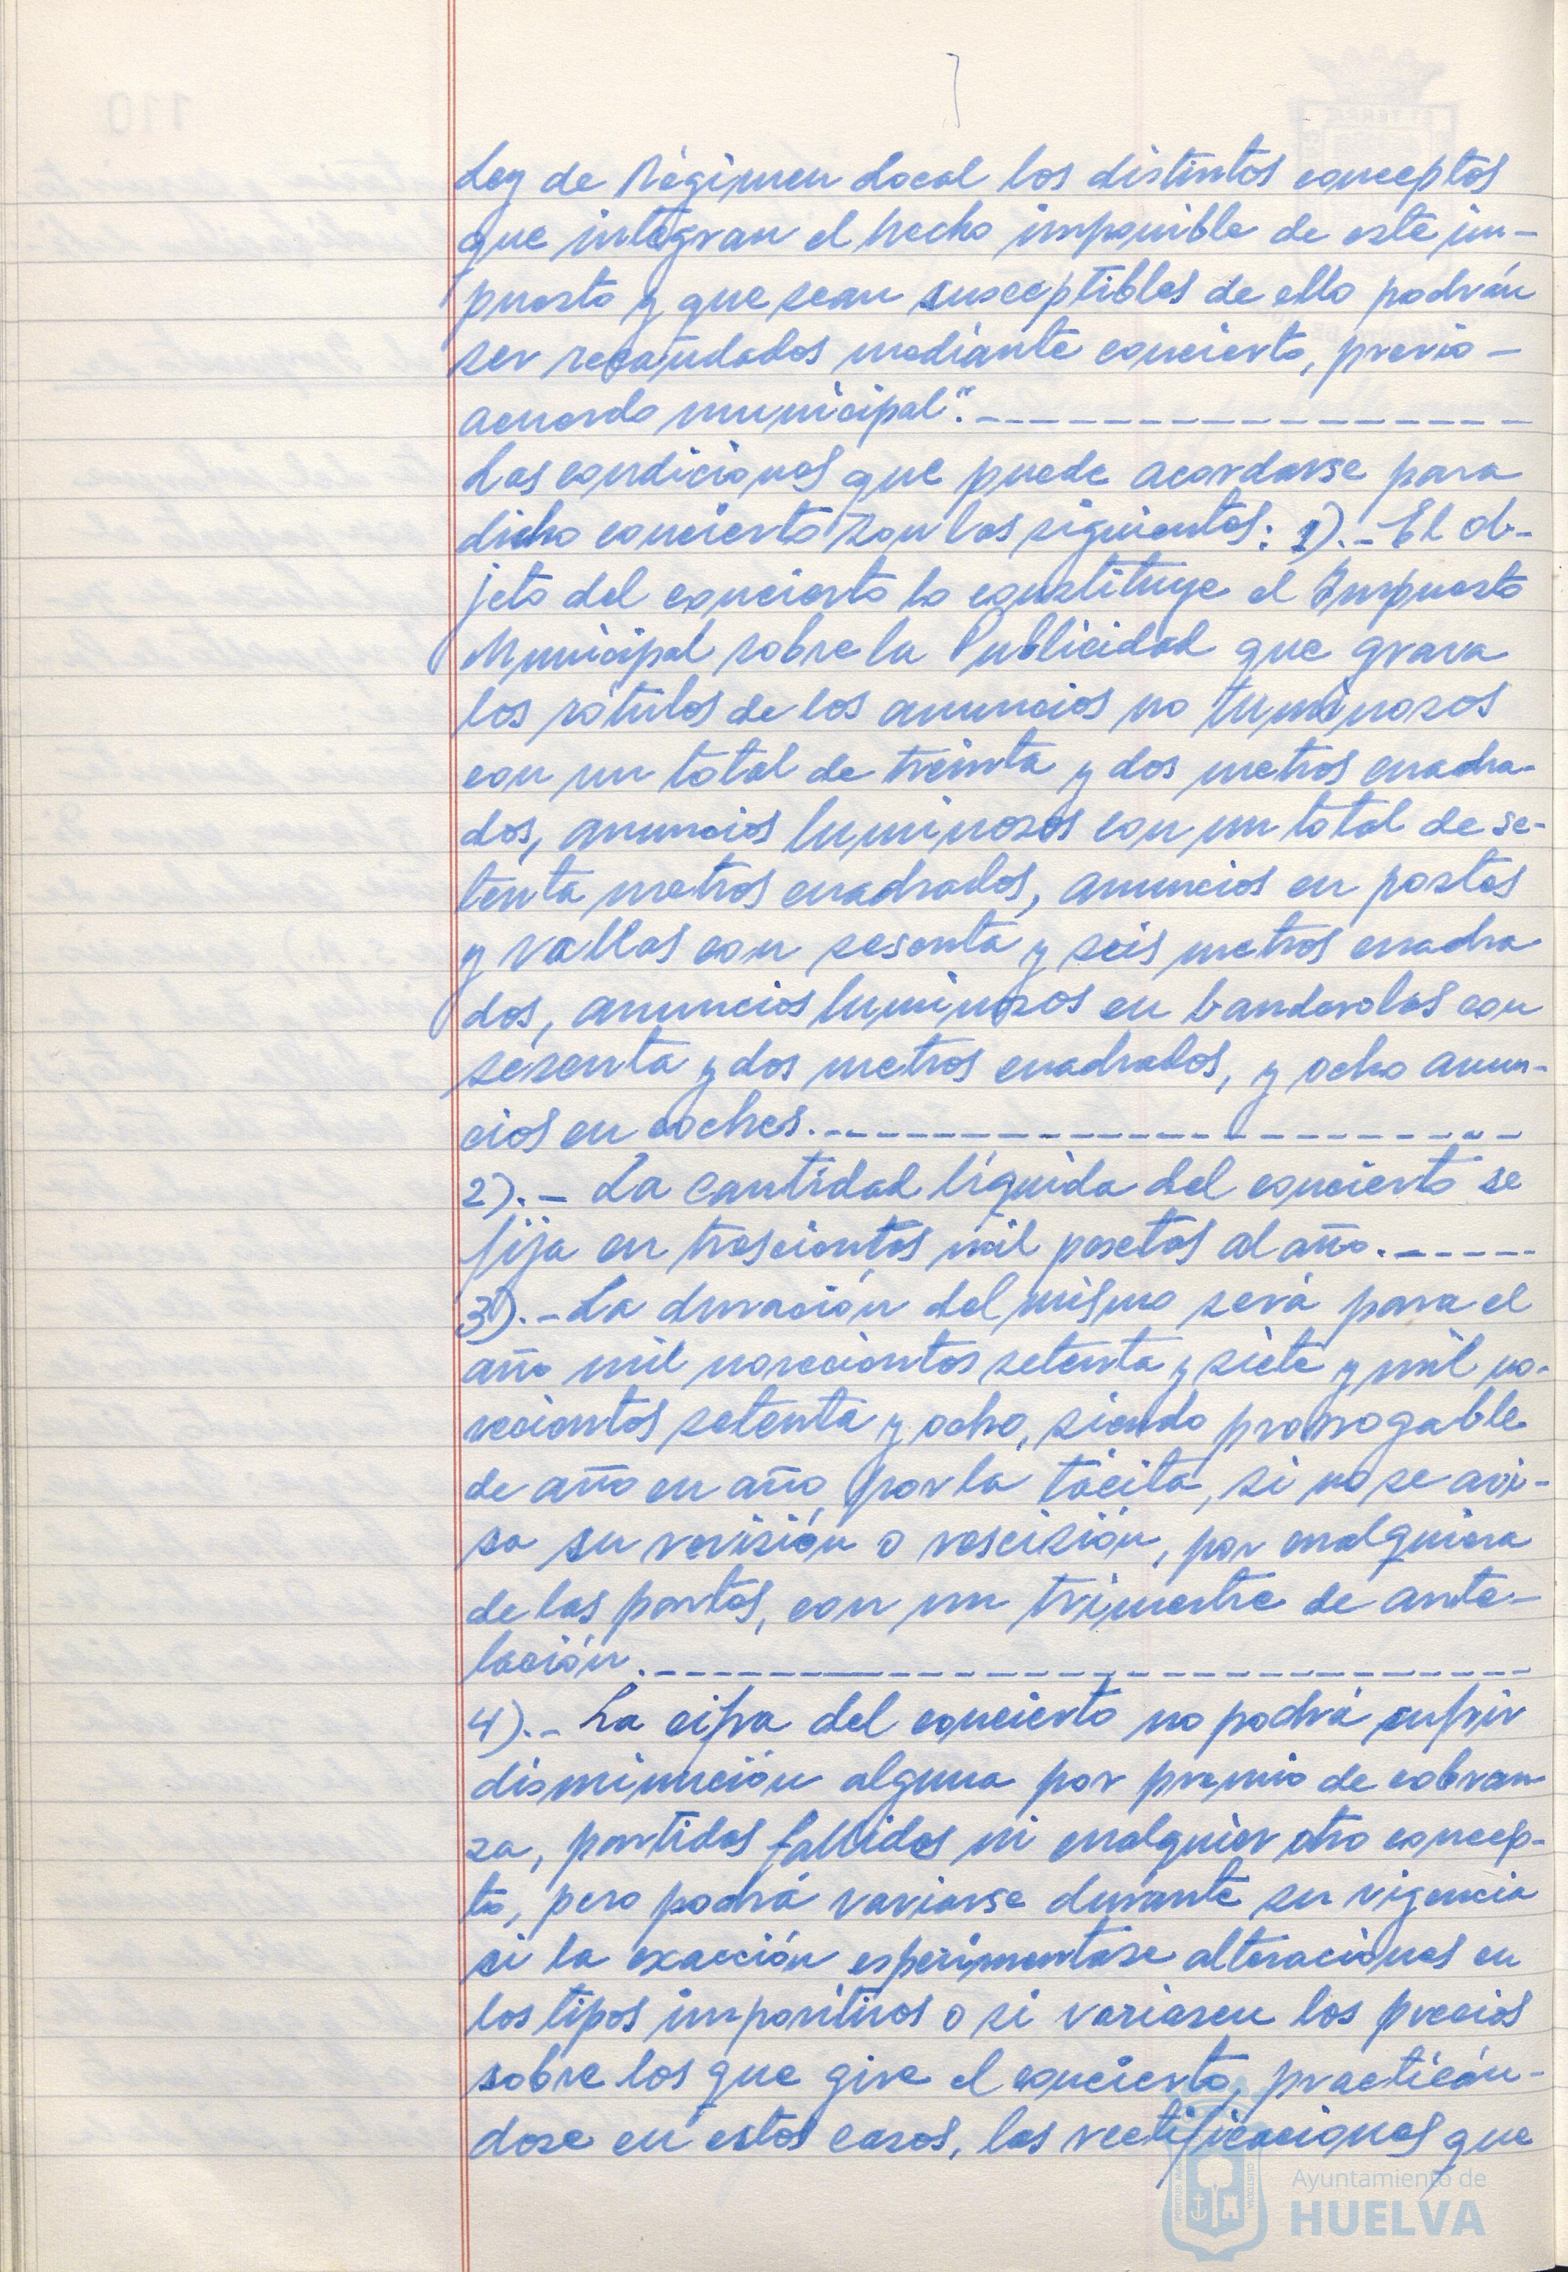 Ley de Régimen Local los distintos conceptos
que integran el hecho imponible de este im-
puesto y que sean susceptibles de ello podrán
ser recaudados mediante concierto, previo -
acuerdo municipal".
Las condiciones que puede acordarse para
dicho concierto son las siguientes: 1).- El ob-
jeto del concierto lo constituye el Impuesto
Municipal sobre la Publicidad que grava
los rótulos de los anuncios no luminosos
con un total de treinta y dos metros cuadra-
dos, anuncios luminosos con un total de se-
tenta metros cuadrados, anuncios en postes
y vallas con sesenta y seis metros cuadra
dos, anuncios luminosos en banderolas con
sesenta y dos metros cuadrados, y ocho anun-
cios en coches.
2).- La cantidad líquida del concierto se
fija en trescientas mil pesetas al año.
3).- La duración del mismo será para el
año mil novecientos setenta y siete y mil no-
vecientos setenta y ocho, siendo prorrogable
de año en año, por la tácita, si no se avi-
sa su revisión o rescisión, por cualquiera
de las partes, con un trimestre de ante-
lación.
4).- La cifra del concierto no podrá sufrir
disminución alguna por premio de cobran
za, partidas fallidas ni cualquier otro concep-
to, pero podrá variarse durante su vigencia
si la exacción esperimentase alteraciones en
los tipos impositivos o si variasen los precios
sobre los que gire el concierto, practicán-
dose en estos casos, las rectificaciones que
Ayuntamiento de
HUELVA